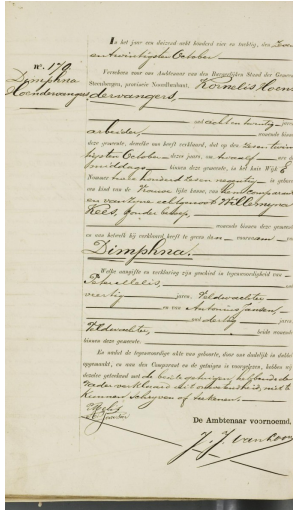 In het jaar een duizend acht honderd vier en tachtig, den Zeven
en twintigsten October
No. 179
Verscheen voor ons Ambtenaar van den Burgerlijken Stand der Gemeente
Dimphna
Steenbergen, provincie Noordbrabant, Kornelis Hoen
Hoendervangers
dervangers,
oud acht en twintig jaren
arbeider, wonende binnen
deze gemeente, dewelke ons heeft verklaard, dat op den Zeven twin
tigsten October dezer jaars, om twaalf ure des
middags binnen deze gemeente, in het huis Wijk E
Nummer twee honderd zeven negentig is geboren
een kind van de Vrouwelijke kunne, van hem comparant
en van zijne echtgenoote Willemyna
Kees, zonder beroep,
wonende binnen deze gemeente
en aan hetwelk hij verklaard heeft te geven den voornaam van
Dimphna.
Welke aangifte en verklaring zijn geschied in tegenwoordigheid van
oud
veertig jaren, Veldwachter
en van Antonius Jansen,
oud dertig jaren
Veldwachter, beide wonende
binnen deze gemeente.
En nadat de tegenwoordige akte van geboorte, door ons dadelijk in dubbel
opgemaakt, en aan den Comparant en de getuigen is voorgelezen, hebben wij
dezelve geteekend met de beide getuigen, hebbende de
Vader verklaard uit onwetendheid, niet te
kunnen schrijven of teekenen.
De Ambtenaar voornoemd,